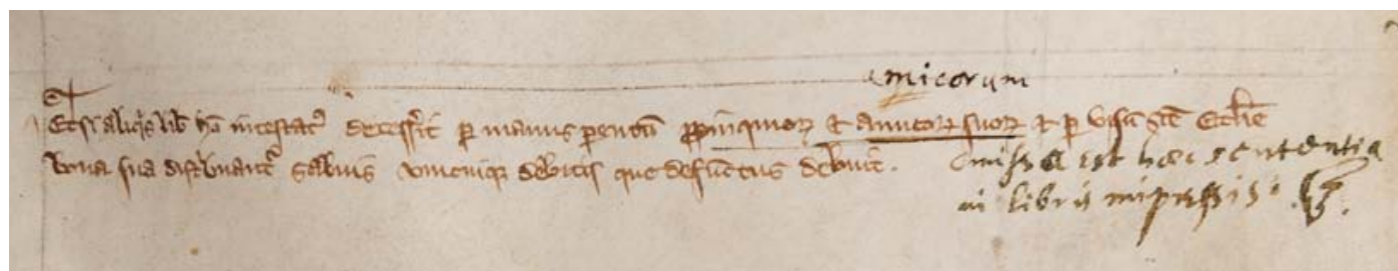 amicorum
Et si aliqis lib ho intestat decesserit p manus parentu ppinquor et amicor suor et p visu sce Ecclie
bona sua distribuant salvis unicuiq debitis que defunctus debuit.
omissa est haec sententia
in libris impressis.